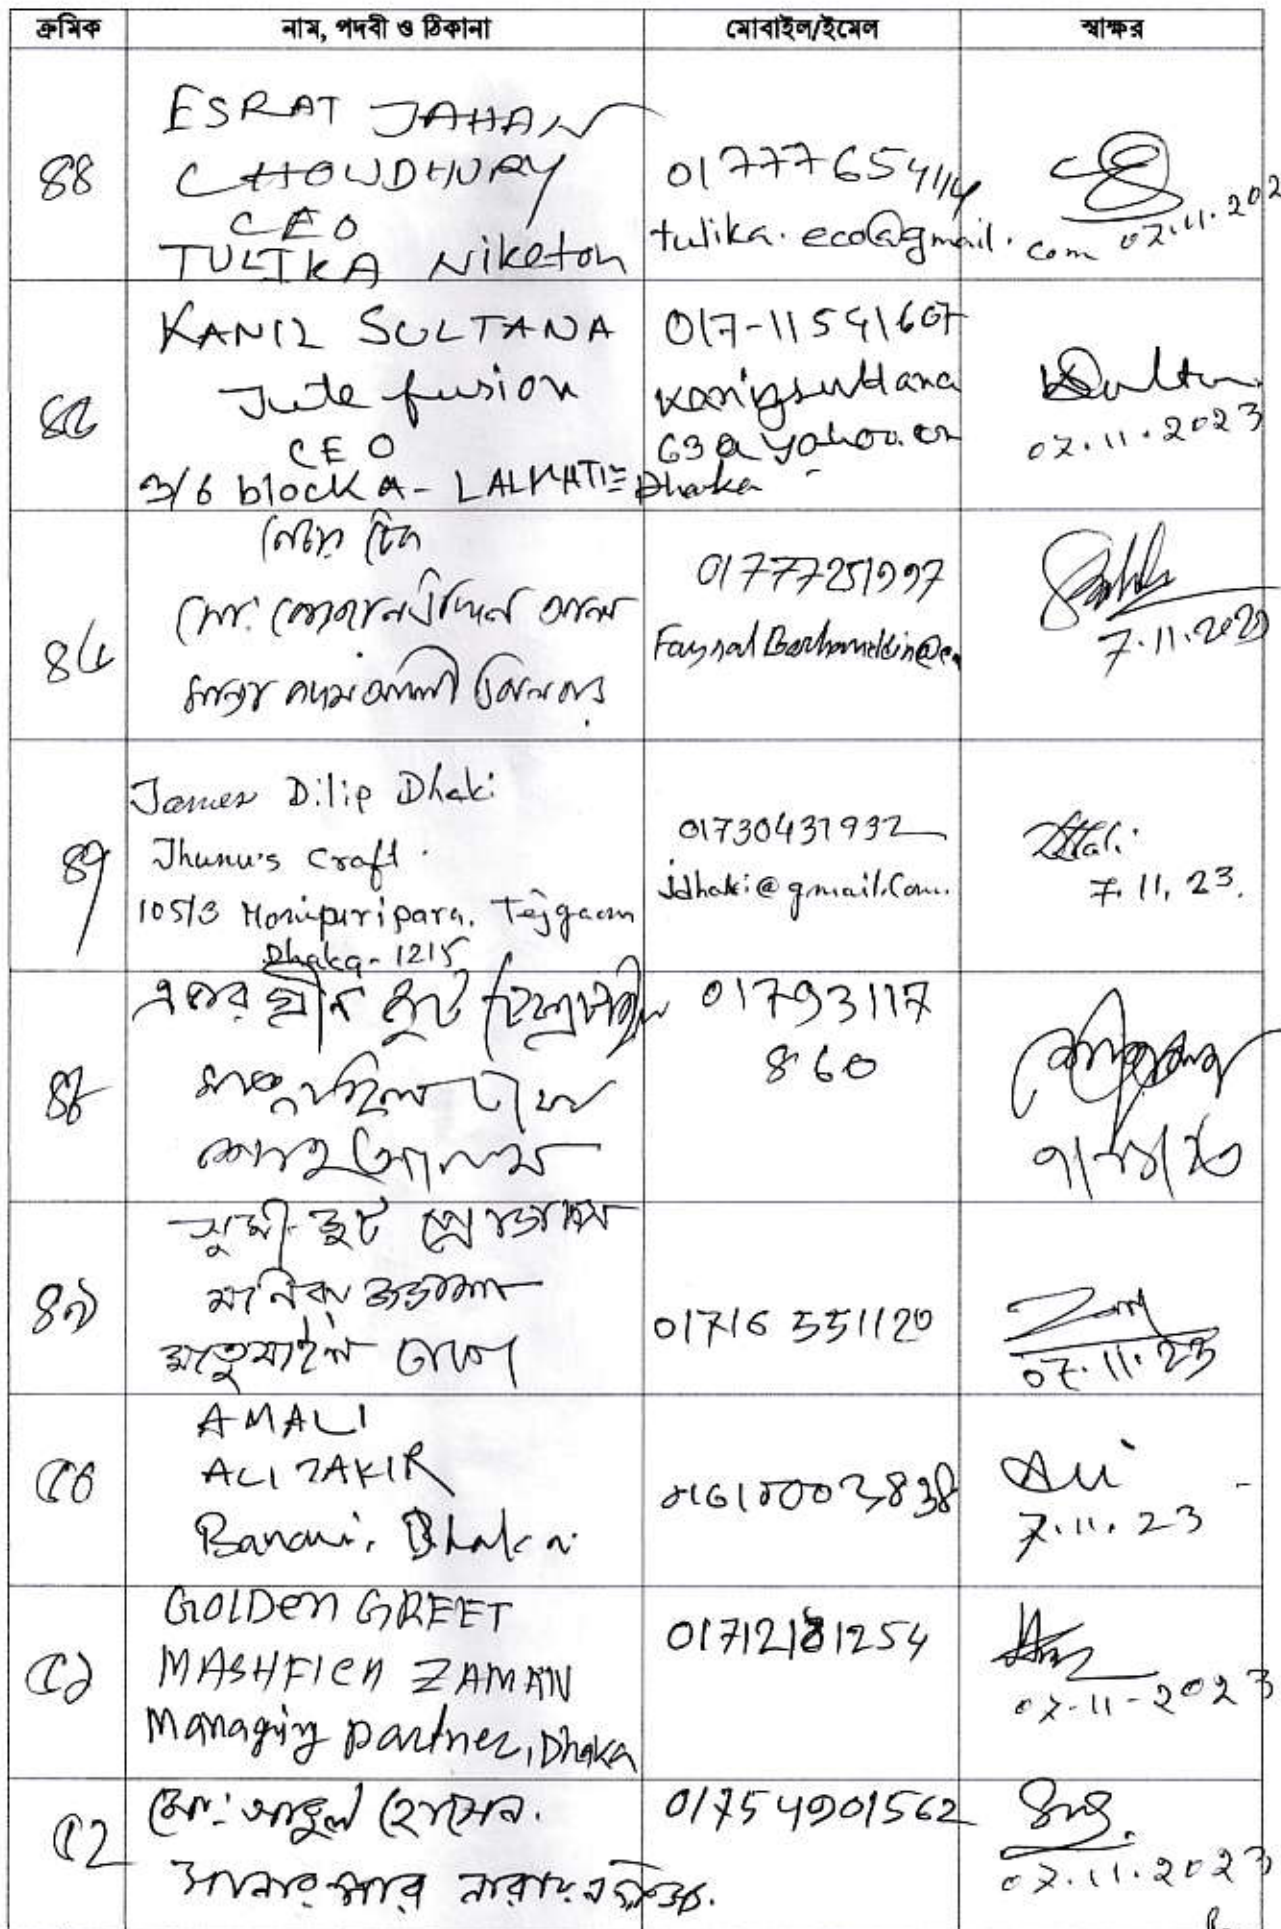 ক্রমিক নাম, পদবী ও ঠিকানা মোবাইল/ইমেল স্বাক্ষর
৪৪
ESRAT JAHAN
CHOUDHURY
CEO
TULIKA Niketon
01777654114
tulika.eco@gmail.com
07.11.202
৪৫
KANIZ SULTANA
Jute fusion
CEO
3/6 block A- LALMATIA Dhaka
017-11541607
kanizsultana
63@yahoo.com
07.11.2023
৪৬
মো:
01777251997
7.11.2023
৪৭
James Dilip Dhaki
Jhunu's Craft
105/3 Monipuripara, Tejgaon
Dhaka-1215
01730431932
jdhaki@gmail.com.
7.11.23.
৪৮
গ্রীন জুট
01793117
860
৭/১১/২৩
৪৯
সুমী জুট প্রোডাক্টস
মাতুয়াইল ঢাকা
01716 551120
07.11.23
৫০
AMALI
ALI ZAKIR
Banani, Dhaka
Ali
7.11.23
৫১
GOLDEN GREET
MASHFICA ZAMAN
Managing partner, Dhaka
01712181254
07-11-2023
৫২
মো: আবুল হোসেন.
সোনারগাঁও নারায়ণগঞ্জ.
01754901562
07.11.2023